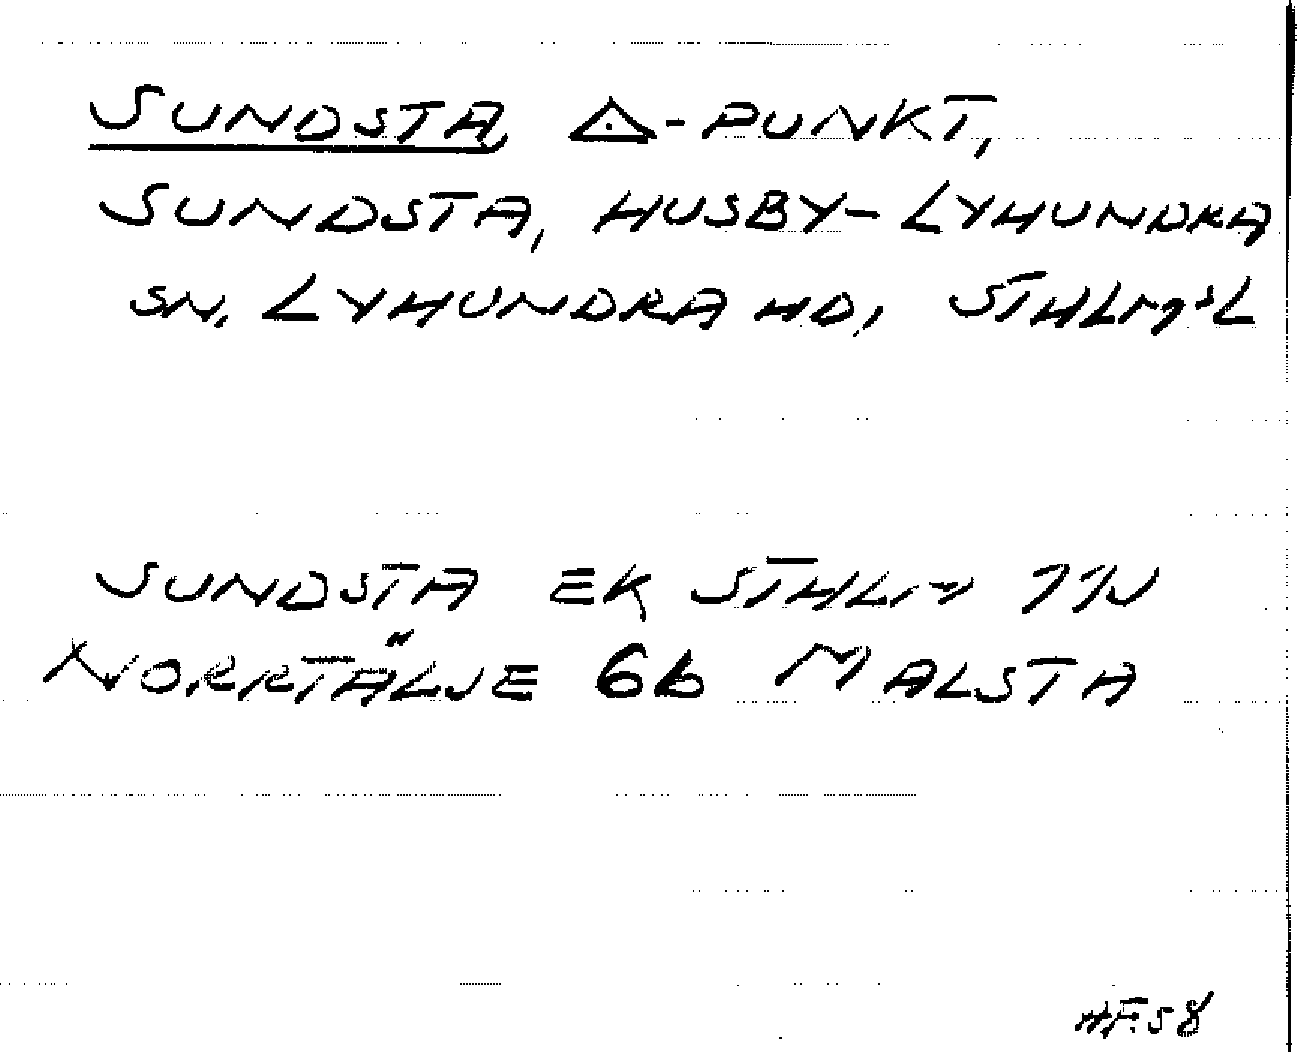 SUNDSTA, △-PUNKT,
SUNDSTA, HUSBY-LYHUNDRA
SN, LYHUNDRA HD, STHLM:S L
SUNDSTA EK STHLM 11N
NORRTÄLJE 6b MALSTA
HF.58